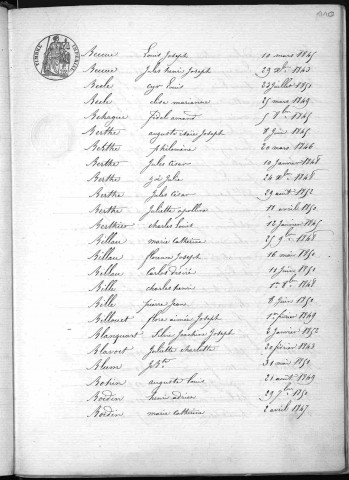 TIMBRE IMPERIAL
Beuve Louis Joseph 10 mars 1845
Beuve Jules henri Joseph 29 Xbre 1843
Beele Cyr Louis 23 juillet 1850
Beele elisa marianne 25 mars 1849
Behague fidel amand 5 8bre 1845
Berthe auguste Joseph 8 Juin 1845
Berthe philomène 20 mars 1846
Berthe Jules César 10 janvier 1848
Berthe Julie 24 Xbre 1848
Berthe Jules César 29 août 1852
Berthe Juliette apolline 11 avril 1850
Berthier charles Louis 12 Janvier 1845
Billau marie catherine 25 9bre 1848
Billau florence Joseph 16 mai 1850
Billau Carlos Désiré 10 Juin 1850
Bille charles henri 1er 8bre 1848
Bille pierre Jean 8 Juin 1850
Billouet flore aimée Joseph 1er février 1849
Blanquart Silvie Joachim Joseph 6 Janvier 1852
Blavoet Juliette charlotte 20 février 1843
Blum J Bte 31 mai 1850
Bohin auguste Louis 21 août 1849
Boidin henri adrien 29 7bre 1850
Boidin marie catherine 2 avril 1847